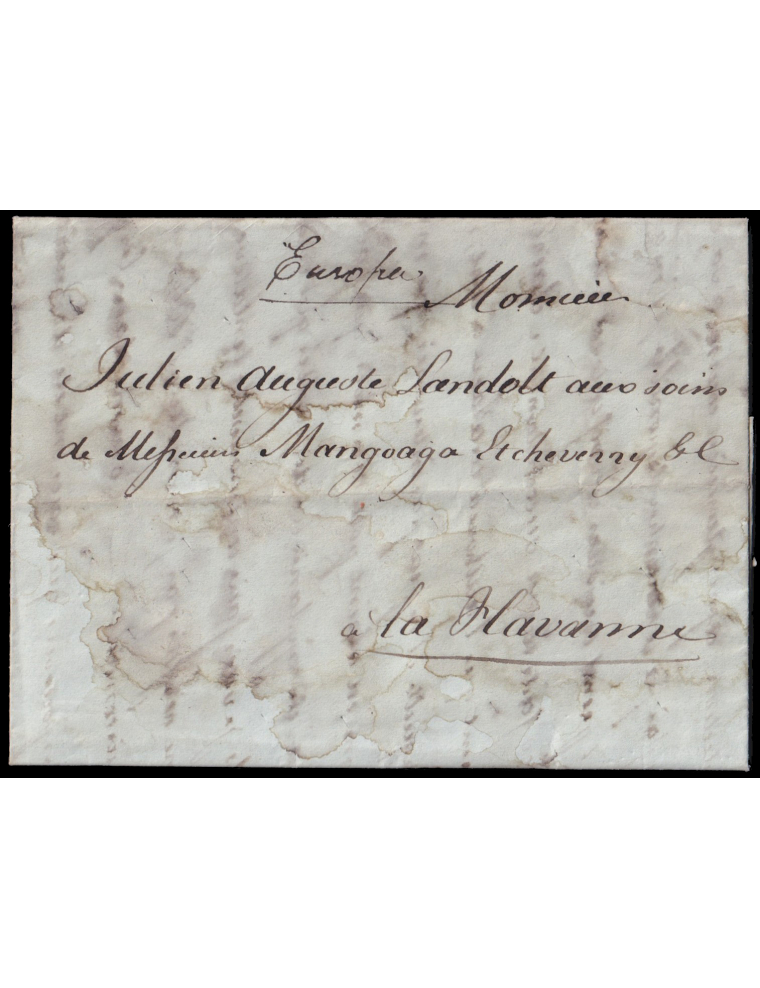 Europa
Monsieur
Julien Auguste Landolt aux soins
de Messieurs Mangoaga Etcheverry & C
à la Havanne